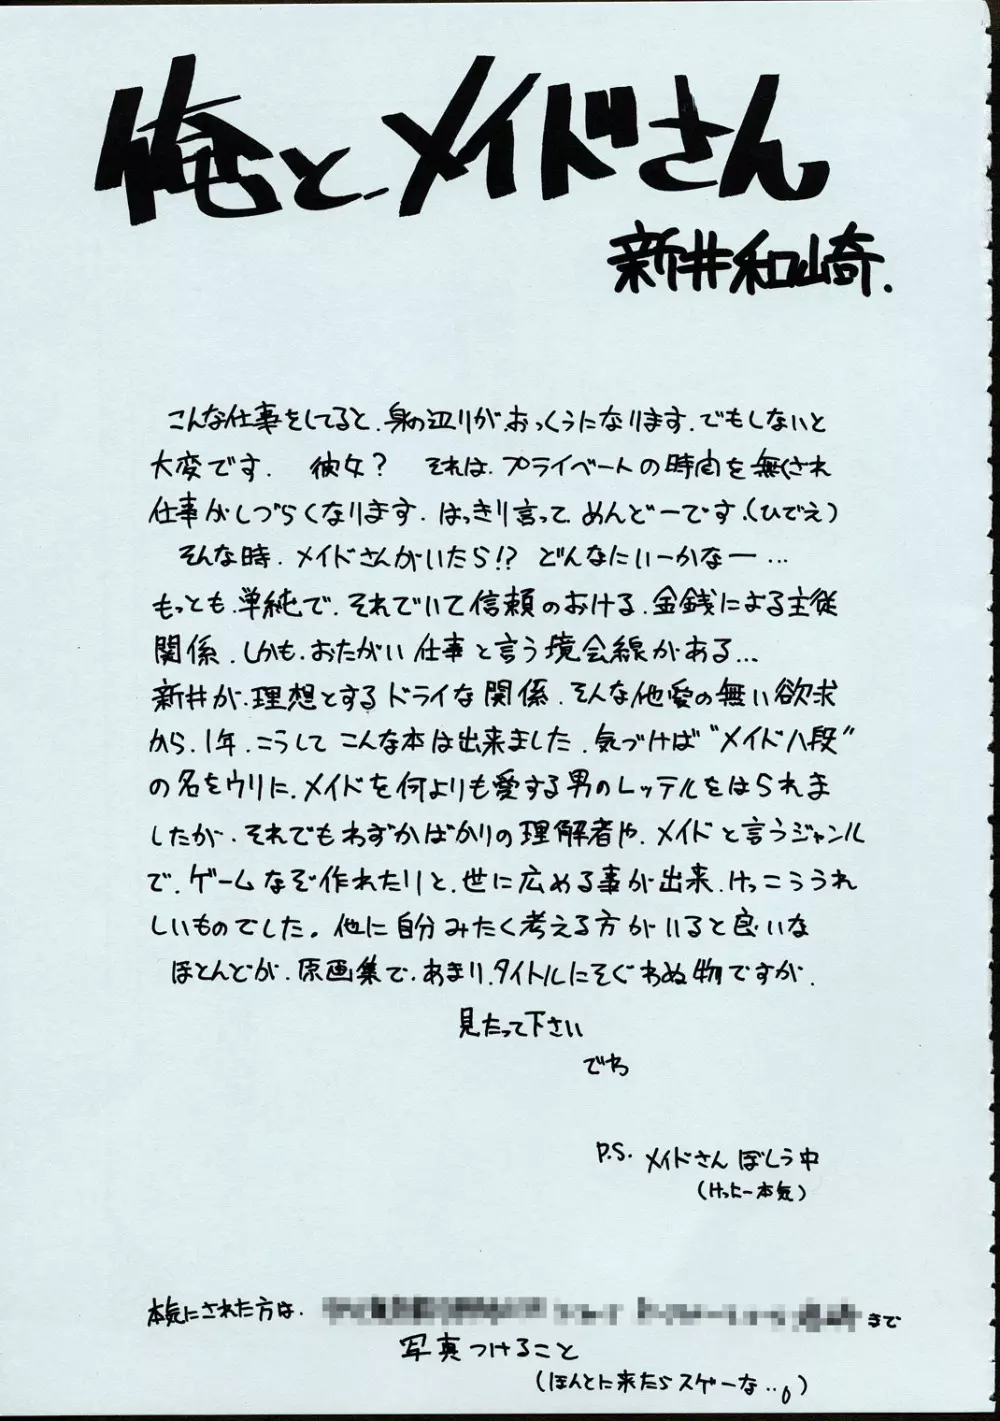 俺とメイドさん
新井和崎.
こんな仕事をしてると、身の辺りが、おっくうになります。でもしないと
大変です。 彼女? それは、プライベートの時間を無くされ
仕事がしづらくなります。はっきり言って、めんどーです。(ひでえ)
そんな時、メイドさんがいたら!? どんなにいーかなー…
もっとも、単純で、それでいて信頼のおける、金銭による主従
関係、しかも、おたがい仕事と言う境会線がある…
新井が、理想とするドライな関係、そんな他愛の無い欲求
から、1年、こうしてこんな本は出来ました。気づけば“メイド八段”
の名をウリに、メイドを何よりも愛する男のレッテルをはられま
したが、それでもわずかばかりの理解者や、メイドと言うジャンル
で、ゲームなぞ作れたりと、世に広める事が出来、けっこううれ
しいものでした。他に自分みたく考える方がいると良いな
ほとんどが、原画集で、あまり、タイトルにそぐわぬ物ですが、
見たって下さい
でわ
P.S. メイドさんぼしう中
(けっこー本気)
本気にされた方は、 まで
写真つけること
(ほんとに来たらスゲーな..。)